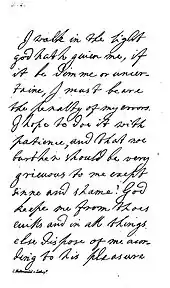 I walk in the light
god hath given me, if
it be dimme or uncer-
taine, I must beare
the penalty of my errors.
I hope to doe it with
patience, and that noe
burthen should be very
grievous to me except
sinne and shame! God
keepe me from thoes
evills and in all things
else dispose of me accor
ding to his pleasure